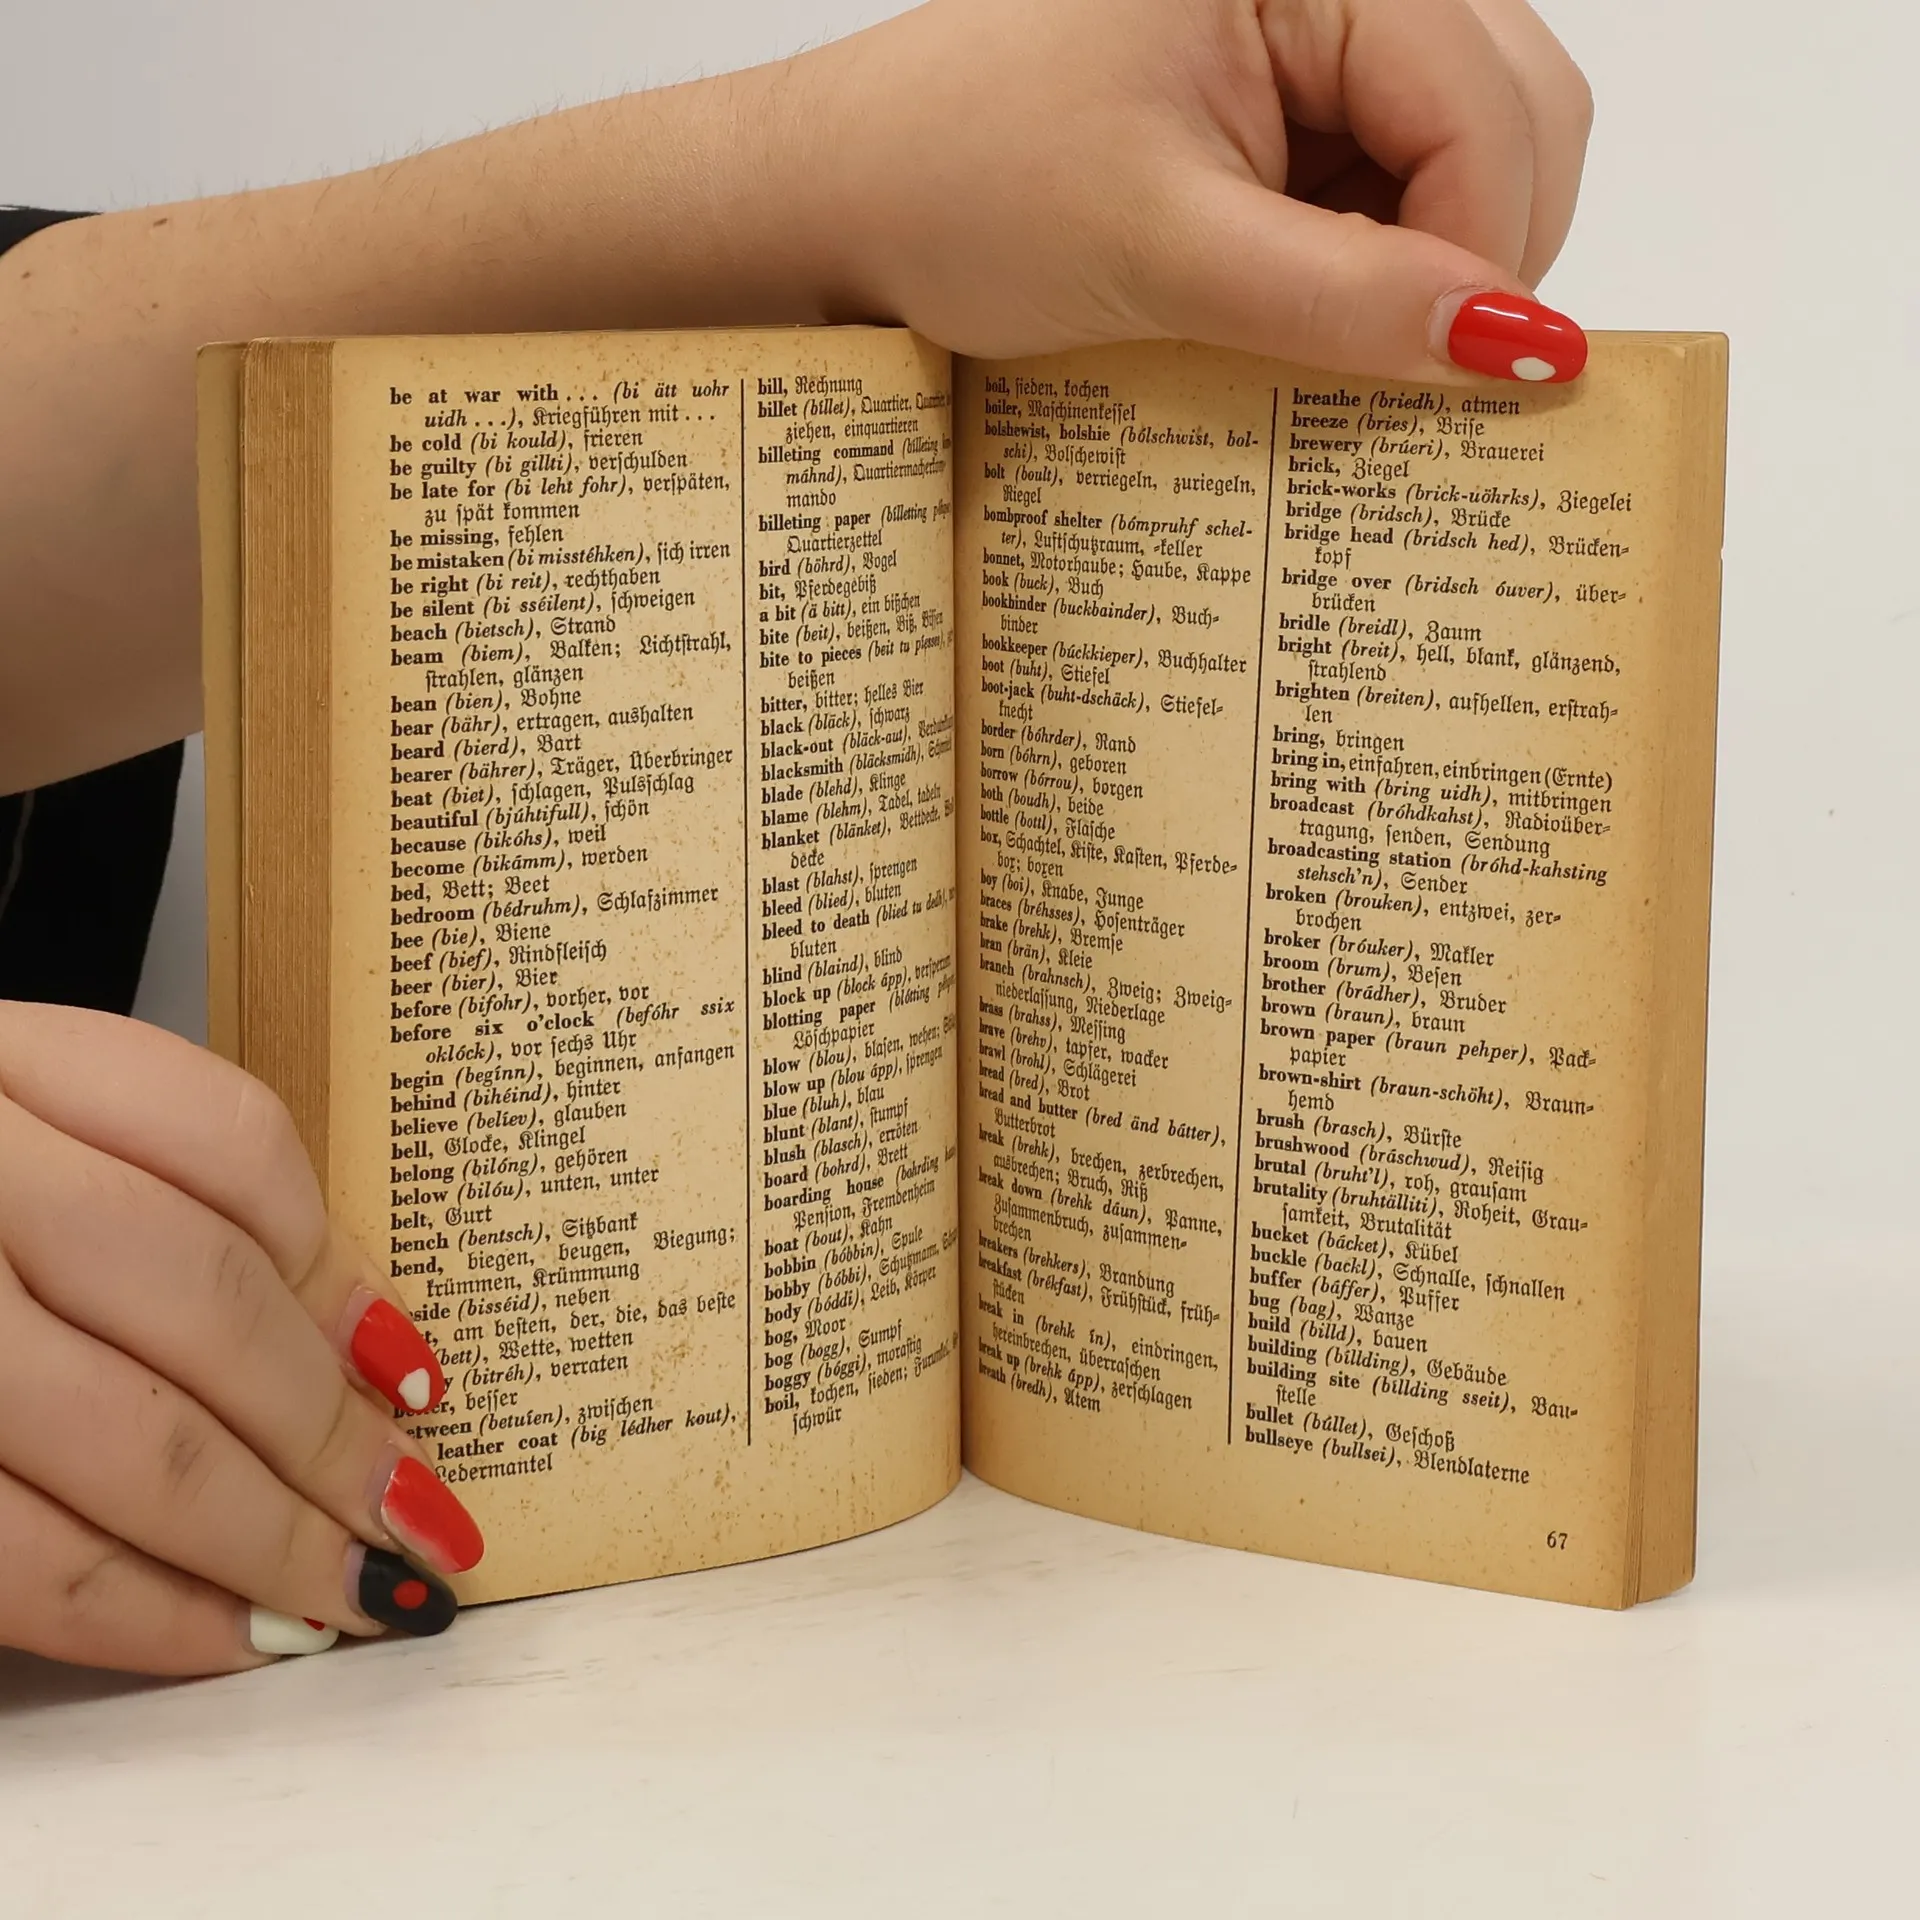 be at war with . . . (bi ätt uohr
uidh . . .), Kriegführen mit . . .
be cold (bi kould), frieren
be guilty (bi gillti), verſchulden
be late for (bi leht fohr), verſpäten,
zu ſpät kommen
be missing, fehlen
be mistaken (bi misstéhken), ſich irren
be right (bi reit), rechthaben
be silent (bi sséilent), ſchweigen
beach (bietsch), Strand
beam (biem), Balken; Lichtſtrahl,
ſtrahlen, glänzen
bean (bien), Bohne
bear (bähr), ertragen, aushalten
beard (bierd), Bart
bearer (bährer), Träger, Überbringer
beat (biet), ſchlagen, Pulsſchlag
beautiful (bjúhtifull), ſchön
because (bikóhs), weil
become (bikámm), werden
bed, Bett; Beet
bedroom (bédruhm), Schlafzimmer
bee (bie), Biene
beef (bief), Rindfleiſch
beer (bier), Bier
before (bifohr), vorher, vor
before six o'clock (befóhr ssix
oklóck), vor ſechs Uhr
begin (begínn), beginnen, anfangen
behind (bihéind), hinter
believe (belíev), glauben
bell, Glocke, Klingel
belong (bilóng), gehören
below (bilóu), unten, unter
belt, Gurt
bench (bentsch), Sitzbank
bend, biegen, beugen, Biegung;
krümmen, Krümmung
side (bisséid), neben
am beſten, der, die, das beſte
(bett), Wette, wetten
(bitréh), verraten
beſſer
etween (betuíen), zwiſchen
leather coat (big lédher kout),
Ledermantel
bill, Rechnung
billet (bíllet), Quartier,
ziehen, einquartieren
billeting command (bílleting
máhnd),
mando
billeting paper (bílletting
Quartierzettel
bird (böhrd), Vogel
bit, Pferdegebiß
a bit (ä bitt), ein bißchen
bite (beit), beißen, Biß, Biſſen
bite to pieces (beit tu plesses),
beißen
bitter, bitter; helles Bier
black (bläck), ſchwarz
black-out (bläck-aut),
blacksmith (bläcksmidh),
blade (blehd), Klinge
blame (blehm), Tadel, tadeln
blanket (blänket), Bettdecke,
decke
blast (blahst), ſprengen
bleed (blied), bluten
bleed to death (blied tu dedh),
bluten
blind (blaind), blind
block up (block ápp), verſperren
blotting paper (blótting
Löſchpapier
blow (blou), blaſen, wehen;
blow up (blou ápp), ſprengen
blue (bluh), blau
blunt (blant), ſtumpf
blush (blasch), erröten
board (bohrd), Brett
boarding house (bohrding
Penſion, Fremdenheim
boat (bout), Kahn
bobbin (bóbbin), Spule
bobby (bóbbi), Schutzmann,
body (bóddi), Leib, Körper
bog, Moor
bog (bogg), Sumpf
boggy (bóggi), moraſtig
boil, kochen, ſieden;
ſchwür
boil, ſieden, kochen
boiler, Maſchinenkeſſel
bolshewist, bolshie (bólschwist, bol-
schi), Bolſchewiſt
bolt (boult), verriegeln, zuriegeln,
Riegel
bombproof shelter (bómpruhf schel-
ter), Luftſchutzraum, -keller
bonnet, Motorhaube; Haube, Kappe
book (buck), Buch
bookbinder (buckbainder), Buch-
binder
bookkeeper (búckkieper), Buchhalter
boot (buht), Stiefel
boot-jack (buht-dschäck), Stiefel-
knecht
border (bóhrder), Rand
born (bóhrn), geboren
borrow (bórrou), borgen
both (boudh), beide
bottle (bottl), Flaſche
box, Schachtel, Kiſte, Kaſten, Pferde-
box; boxen
boy (boi), Knabe, Junge
braces (bréhsses), Hoſenträger
brake (brehk), Bremſe
bran (brän), Kleie
branch (brahnsch), Zweig; Zweig-
niederlaſſung, Niederlage
brass (brahss), Meſſing
brave (brehv), tapfer, wacker
brawl (brohl), Schlägerei
bread (bred), Brot
bread and butter (bred änd bátter),
Butterbrot
break (brehk), brechen, zerbrechen,
ausbrechen; Bruch, Riß
break down (brehk dáun), Panne,
Zuſammenbruch, zuſammen-
brechen
breakers (brehkers), Brandung
breakfast (brékfast), Frühſtück, früh-
ſtücken
break in (brehk in), eindringen,
hereinbrechen, überraſchen
break up (brehk ápp), zerſchlagen
breath (bredh), Atem
breathe (briedh), atmen
breeze (bries), Briſe
brewery (brúeri), Brauerei
brick, Ziegel
brick-works (brick-uöhrks), Ziegelei
bridge (bridsch), Brücke
bridge head (bridsch hed), Brücken-
kopf
bridge over (bridsch óuver), über-
brücken
bridle (breidl), Zaum
bright (breit), hell, blank, glänzend,
ſtrahlend
brighten (breiten), aufhellen, erſtrah-
len
bring, bringen
bring in, einfahren, einbringen (Ernte)
bring with (bring uidh), mitbringen
broadcast (bróhdkahst), Radioüber-
tragung, ſenden, Sendung
broadcasting station (bróhd-kahsting
stehsch'n), Sender
broken (brouken), entzwei, zer-
brochen
broker (bróuker), Makler
broom (brum), Beſen
brother (brádher), Bruder
brown (braun), braun
brown paper (braun pehper), Pack-
papier
brown-shirt (braun-schöht), Braun-
hemd
brush (brasch), Bürſte
brushwood (bráschwud), Reiſig
brutal (bruht'l), roh, grauſam
brutality (bruhtälliti), Roheit, Grau-
ſamkeit, Brutalität
bucket (bácket), Kübel
buckle (backl), Schnalle, ſchnallen
buffer (báffer), Puffer
bug (bag), Wanze
build (billd), bauen
building (bíllding), Gebäude
building site (bíllding sseit), Bau-
ſtelle
bullet (búllet), Geſchoß
bullseye (bullsei), Blendlaterne
67